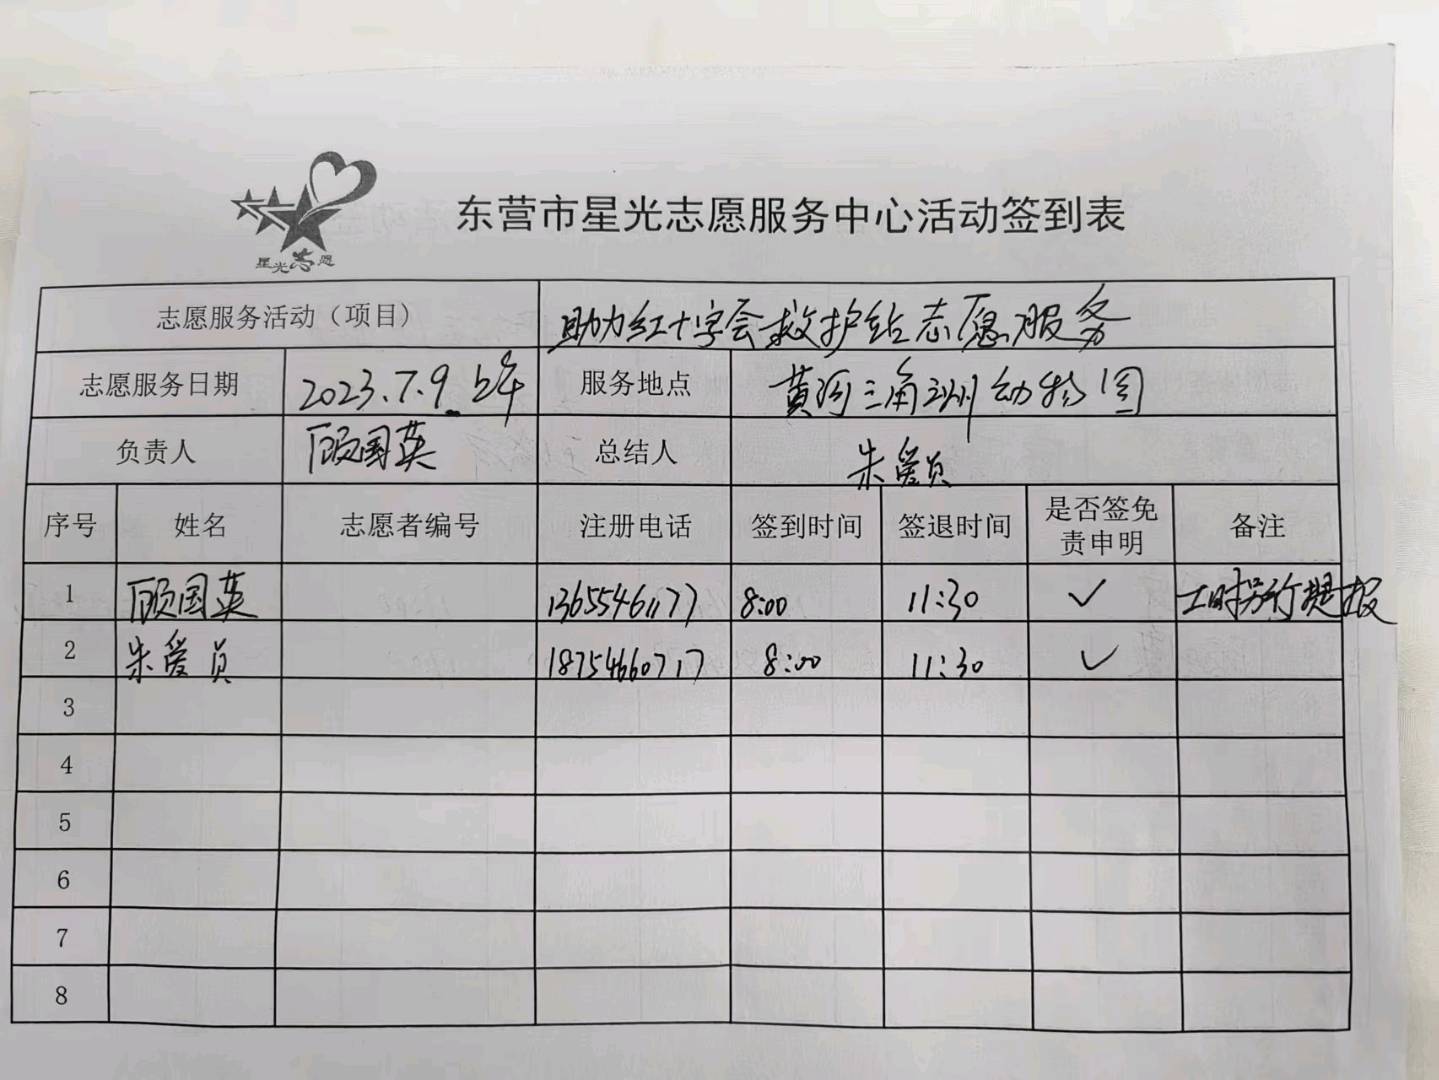 星光志愿
东营市星光志愿服务中心活动签到表
志愿服务活动（项目） 助力红十字会救护站志愿服务
志愿服务日期 2023.7.9 上午 服务地点 黄河三角洲动物园
负责人 顾国英 总结人 朱爱员
序号 姓名 志愿者编号 注册电话 签到时间 签退时间 是否签免 备注
责申明
1 顾国英 13655461177 8:00 11:30 ✓ 工时另行提报
2 朱爱员 18754660717 8:00 11:30 ✓
3
4
5
6
7
8